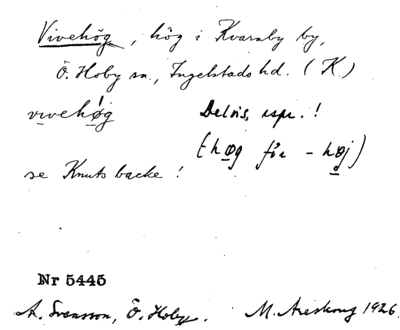 Vivehög, hög i Kvarnby by,
Ö. Hoby sn., Ingelstads hd. (K)
viveho̲g Delvis rspr.!
(-høg för -høj)
se Knuts backe!
Nr 5445
A. Svensson, Ö. Hoby. M. Areskoug 1926.